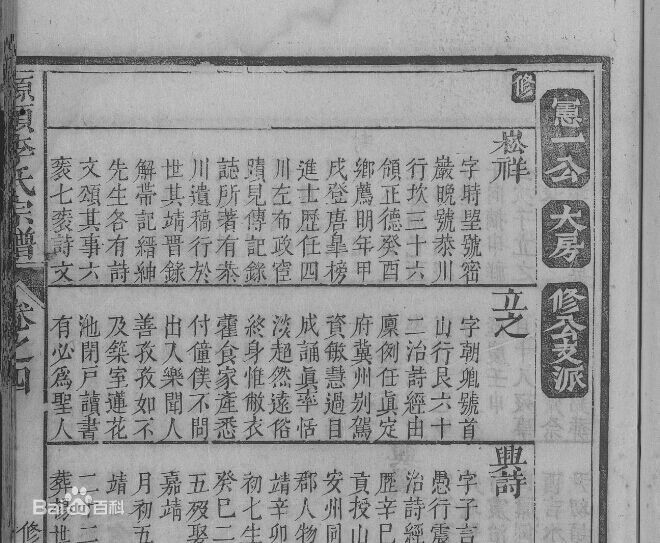 憲一公
大房
修公支派
修
崧祥
字時望號密
巖晚號恭川
行坎三十六
領正德癸酉
鄉薦明年甲
戌登唐皐榜
進士歷任四
川左布政宦
蹟見傳記錄
誌所著有恭
川遺稿行於
世其靖晉錄
解帶記縉紳
先生各有詩
文頌其事六
袠七袠詩文
立之
字朝號首
山行艮六十
二治詩經由
廩例任真定
府冀州别駕
資敏慧過目
成誦真率恬
淡超然遠俗
終身惟敝衣
藿食家產悉
付僮僕不問
出入樂聞人
善孜孜如不
及築室蓮花
池閉戶讀書
有必爲聖人
興詩
字子言
愚行震
治詩經
歷辛巳
貢授山
安州同
郡人物
靖辛卯
初七生
癸巳二
五歿娶
嘉靖
月初五
靖
一二
葬世
源頭李氏宗譜
卷之四
修
Bai百科